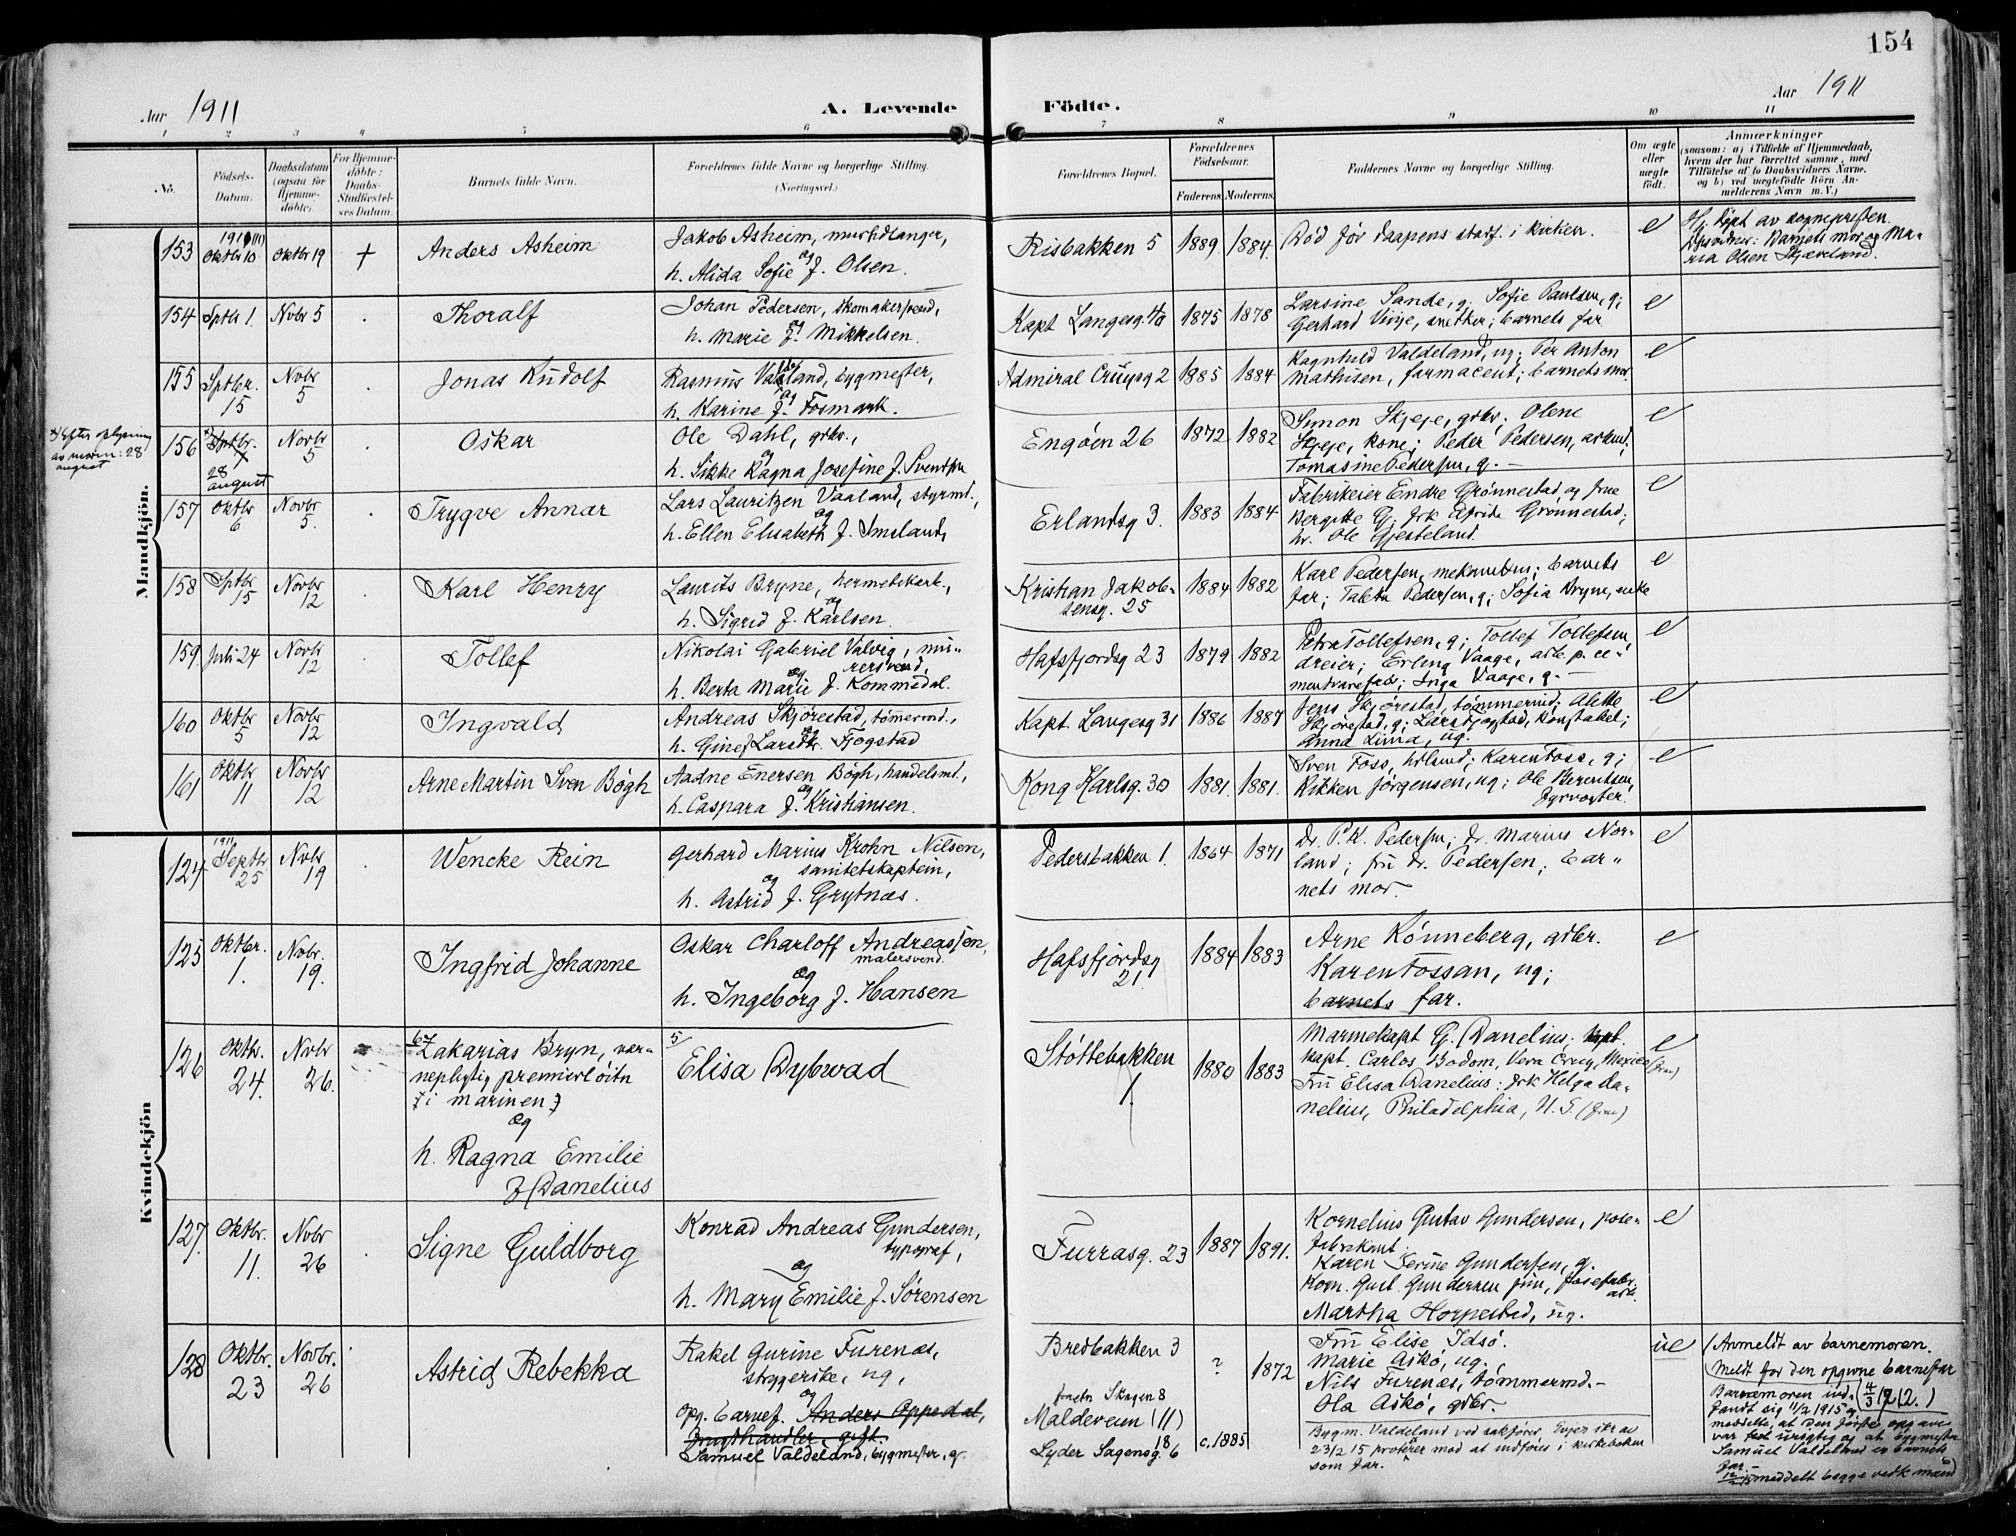 154
Aar 1911
A. Levende
Födte.
Aar 1911
1 2 3 4 5 6 7 8 9 10 11
No.
Födsels-
Datum.
Daabsdatum
(ogsaa for
Hjemme-
döbte).
For Hjemme-
döbte:
Daabs-
Stadfæstel-
ses Datum.
Barnets fulde Navn.
Forældrenes fulde Navne og borgerlige Stilling.
(Næringsvei.)
Forældrenes Bopæl.
Forældrenes
Födselsaar.
Faderens Moderens
Faddernes Navne og borgerlige Stilling.
Om ægte
eller
uægte
födt.
Anmærkninger
(saasom: a) i Tilfælde af Hjemmedaab,
hvem der har forrettet samme, med
Tilföielse af to Daabsvidners Navne,
og b) ved uægtefödte Börn An-
melderens Navn m. V.)
Mandkjön.
153 Oktbr 10 Oktbr 19 + Anders Asheim
Jakob Asheim, murhdlanger,
og
h. Alida Sofie f. Olsen.
Risbakken 5 1889 1884
Död för daapens stadf. i kirken. e
Hj. döpt av sognepresten.
Dpsvidner: Barnets mor og Ma-
ria Olsen Skjæveland.
154 Sptbr 1. Novbr 5 Thoralf
Johan Pedersen, skomakersvend,
og
h. Marie f. Mikkelsen.
Kapt Langesg. 1875 1878
Larsine Sande, g; Sofie Paulsen, g;
Gerhard Viije, snekker; barnets far e
155 Sptbr. 15 Novbr 5 Jonas Rudolf
Rasmus Valand, bygmester,
og
h. Karine f. Fosmark.
Admiral Cruysg 2 1885 1884
Ragnhild Valdeland, ug; Per Anton
Mathisen, farmaceut; barnets mor. e
x) Efter oplysning
av moren: 28
august
156 Sptbr. 28 august Novbr 5 Oskar
Ole Dahl, grbr.,
og
h. Sikke Ragna Josefine f. Svendsen
Engöen 26 1872 1882
Simon Skjeje, grbr; Olene
Skjeje, kone; Peder Pedersen, arbmd;
Tomasine Pedersen, g. — e
157 Oktbr 6 Novbr 5. Trygve Annar
Lars Lauritzen Vaaland, styrmd.,
og
h. Ellen Elisabeth f. Imsland,
Erlandsg 3. 1883 1884
Fabrikeier Endre Grönnestad, og frue
Bergitte G. frk Alfrida Grönnestad;
hr. Ole Gjesteland. e
158 Sptbr 15 Novbr 12 Karl Henry
Laurits Bryne, hermetikarb.,
og
h. Sigrid f. Karlsen.
Kristian Jakob-
sensg. 25 1884 1882
Karl Pedersen, mekanikus; barnets
far; Talette Pedersen, g; Sofia Bryne, enke e
159 Juli 24 Novbr 12 Tollef
Nikolai Gabriel Valvig, mu-
rersvend,
og
h. Berta Marie f. Kommedal.
Hafsfjordsg 23 1879 1882
Petra Tollefsen, g; Tollef Tollefsen,
dreier; Erling Vaage, arb. p. ce-
mentvarefabr; Inga Vaage, g. — e
160 Oktbr 5 Novbr 12 Ingvald
Andreas Skjörestad, tömmermd.,
og
h. Gine f. Larsdtr. Fjogstad
Kapt. Langesg 31 1886 1887
Jens Skjörestad, tömmermd; Alette
Skjörestad, g; Lars Fjogstad, konstabel;
Anna Lima, ug. e
161 Oktbr 11 Novbr 12 Arne Martin Sven Bögh
Aadne Enersen Bögh, handelsmd.,
og
h. Caspara f. Kristiansen.
Kong Karlsg. 30 1881. 1881.
Sven Foss, hdlsmd; Karen Foss, g;
Rikken Jörgensen, ug; Ole Berentsen,
fyrvogter. e
Kvindekjön
124 1911 Septbr 25 Novbr 19 Wencke Rein
Gerhard Marius Krohn Nilsen,
sanitetskaptein,
og
h. Astrid f. Grytnæs.
Pedersbakken 1. 1864 1871
Dr. P. K. Pedersen; dr. Marius Nor-
land; fru dr. Pedersen; bar-
nets mor. e
125 Oktbr. 1. Novbr. 19. Ingfrid Johanne
Oskar Charloff Andreassen,
malersvend.
og
h. Ingeborg f. Hansen
Hafsfjordsg
21 1884 1883
Arne Rönneberg, grbr.
Karen Fossan, ug;
barnets far. e
126 Oktbr. 24. Novbr 26.
6) Zakarias Bryn, vær-
nepligtig premierlöitn
i marinen
og
h. Ragna Emilie
f. Danelius
5) Elisa Dybwad
Stöttebakken
1. 1880 1883
Marinekapt G. Danelius;
kapt. Carlos Bodom, Vera Cruz, Mexico (frav)
Fru Elisa Danelius; frk Helga Da-
nelius, Philadelphia, U. S. (frav) e
127. Oktbr. 11. Novbr 26 Signe Guldborg
Konrad Andreas Gundersen,
typograf,
og
h. Mary Emilie f. Sörensen
Furrasg. 23 1887 1891.
Kornelius Gustav Gundersen, pose-
fabrikant.
Karen Serine Gundersen, g.
Korn. Gust. Gundersen jun, posefabr.
arb.
Martha Horpestad, ug. e
128 Oktbr. 23 Novbr. 26 Astrid Rebekka
Rakel Gurine Furenæs,
strygerske, ug,
og
opg. barnef. Anders Oppedal,
frugthandler, gift.
Samuel Valdeland, bygmester, g.
Bredbakken 3
Skagen 8
Lyder Sagensg. 6
? 1872
c. 1885
Fru Elise Idsö.
Marie Askö, ug.
Nils Furenæs, tömmermd. —
Ola Askö, grbr. —
Bygm. Valdeland ved sakförer Eyjes skr av
23/2 15 protesterer mod at indföres i kirkeboken
som far.
ue
(Anmeldt av barnemoren.
Meldt for den opgivne barnefar
Barnemoren ind-
fandt sig 11/2 1915 og
meddelte, at den först opg. avn
var feil urigtig og at bygmester
Samuel Valdeland er barnets
far. —
meddelt begge vedk mænd)